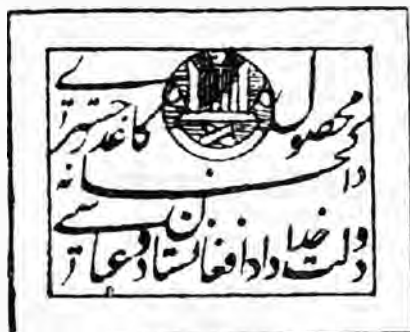 محصول کاغذ رجستری
داکخانه
دولت خداداد افغانستان